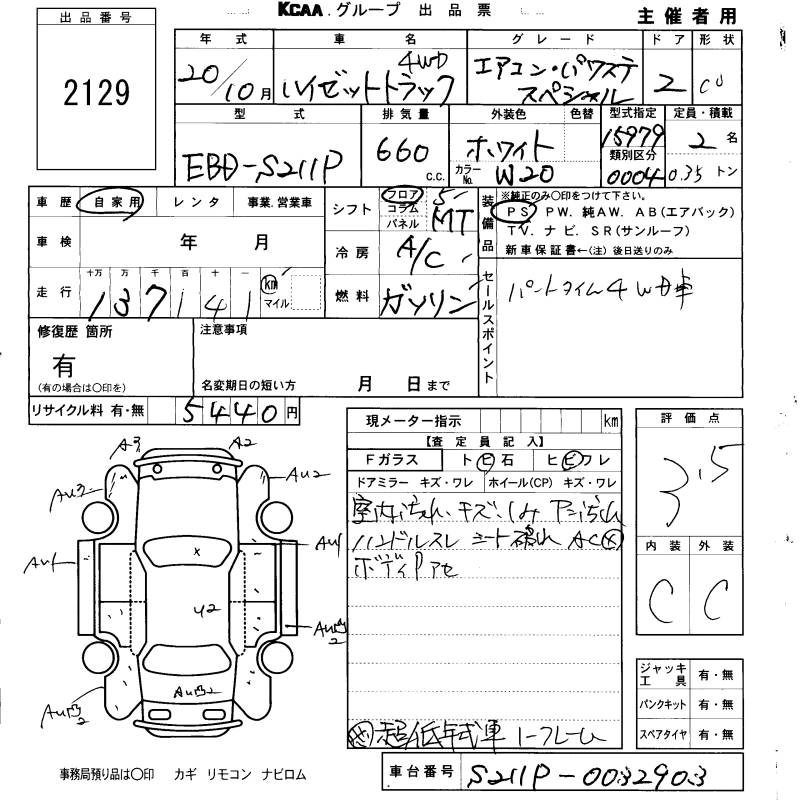 KCAA.グループ 出品票
主催者用
出品番号
2129
年式 車名 グレード ドア 形状
20/10月 ハイゼットトラック 4WD エアコン・パワステ スペシャル 2
型式 排気量 外装色 色替 型式指定 定員・積載
EBD-S211P 660 c.c. ホワイト 15979 2 名
カラーNo. W20 類別区分 0004 0.35 トン
車歴 自家用 レンタ 事業.営業車
シフト フロア コラム パネル 5 MT
装備品 ※純正のみ〇印をつけて下さい。
PS PW. 純AW. AB(エアバック)
TV. ナビ. SR(サンルーフ)
新車保証書←(注) 後日送りのみ
車検 年 月
冷房 A/C
走行 十万 万 千 百 十 一 km マイル
137141
燃料 ガソリン
セールスポイント
パートタイム4WD車
修復歴 箇所
有
(有の場合は〇印を)
注意事項
名変期日の短い方 月 日まで
リサイクル料 有・無 5440円
現メーター指示 km
【査定員記入】
Fガラス トビ石 ヒビワレ
ドアミラー キズ・ワレ ホイール(CP) キズ・ワレ
室内 キズ・しみ
ハンドルスレ シート破れ AC
ボディ
超低年式車
車台番号 S211P-0032903
評価点
3.5
内装 外装
C C
ジャッキ工具 有・無
パンクキット 有・無
スペアタイヤ 有・無
A3 A2
AU3 AU2
AU1 AU1
X
U2
AU凹2
AU凹2
AU凹2
事務局預り品は〇印 カギ リモコン ナビロム